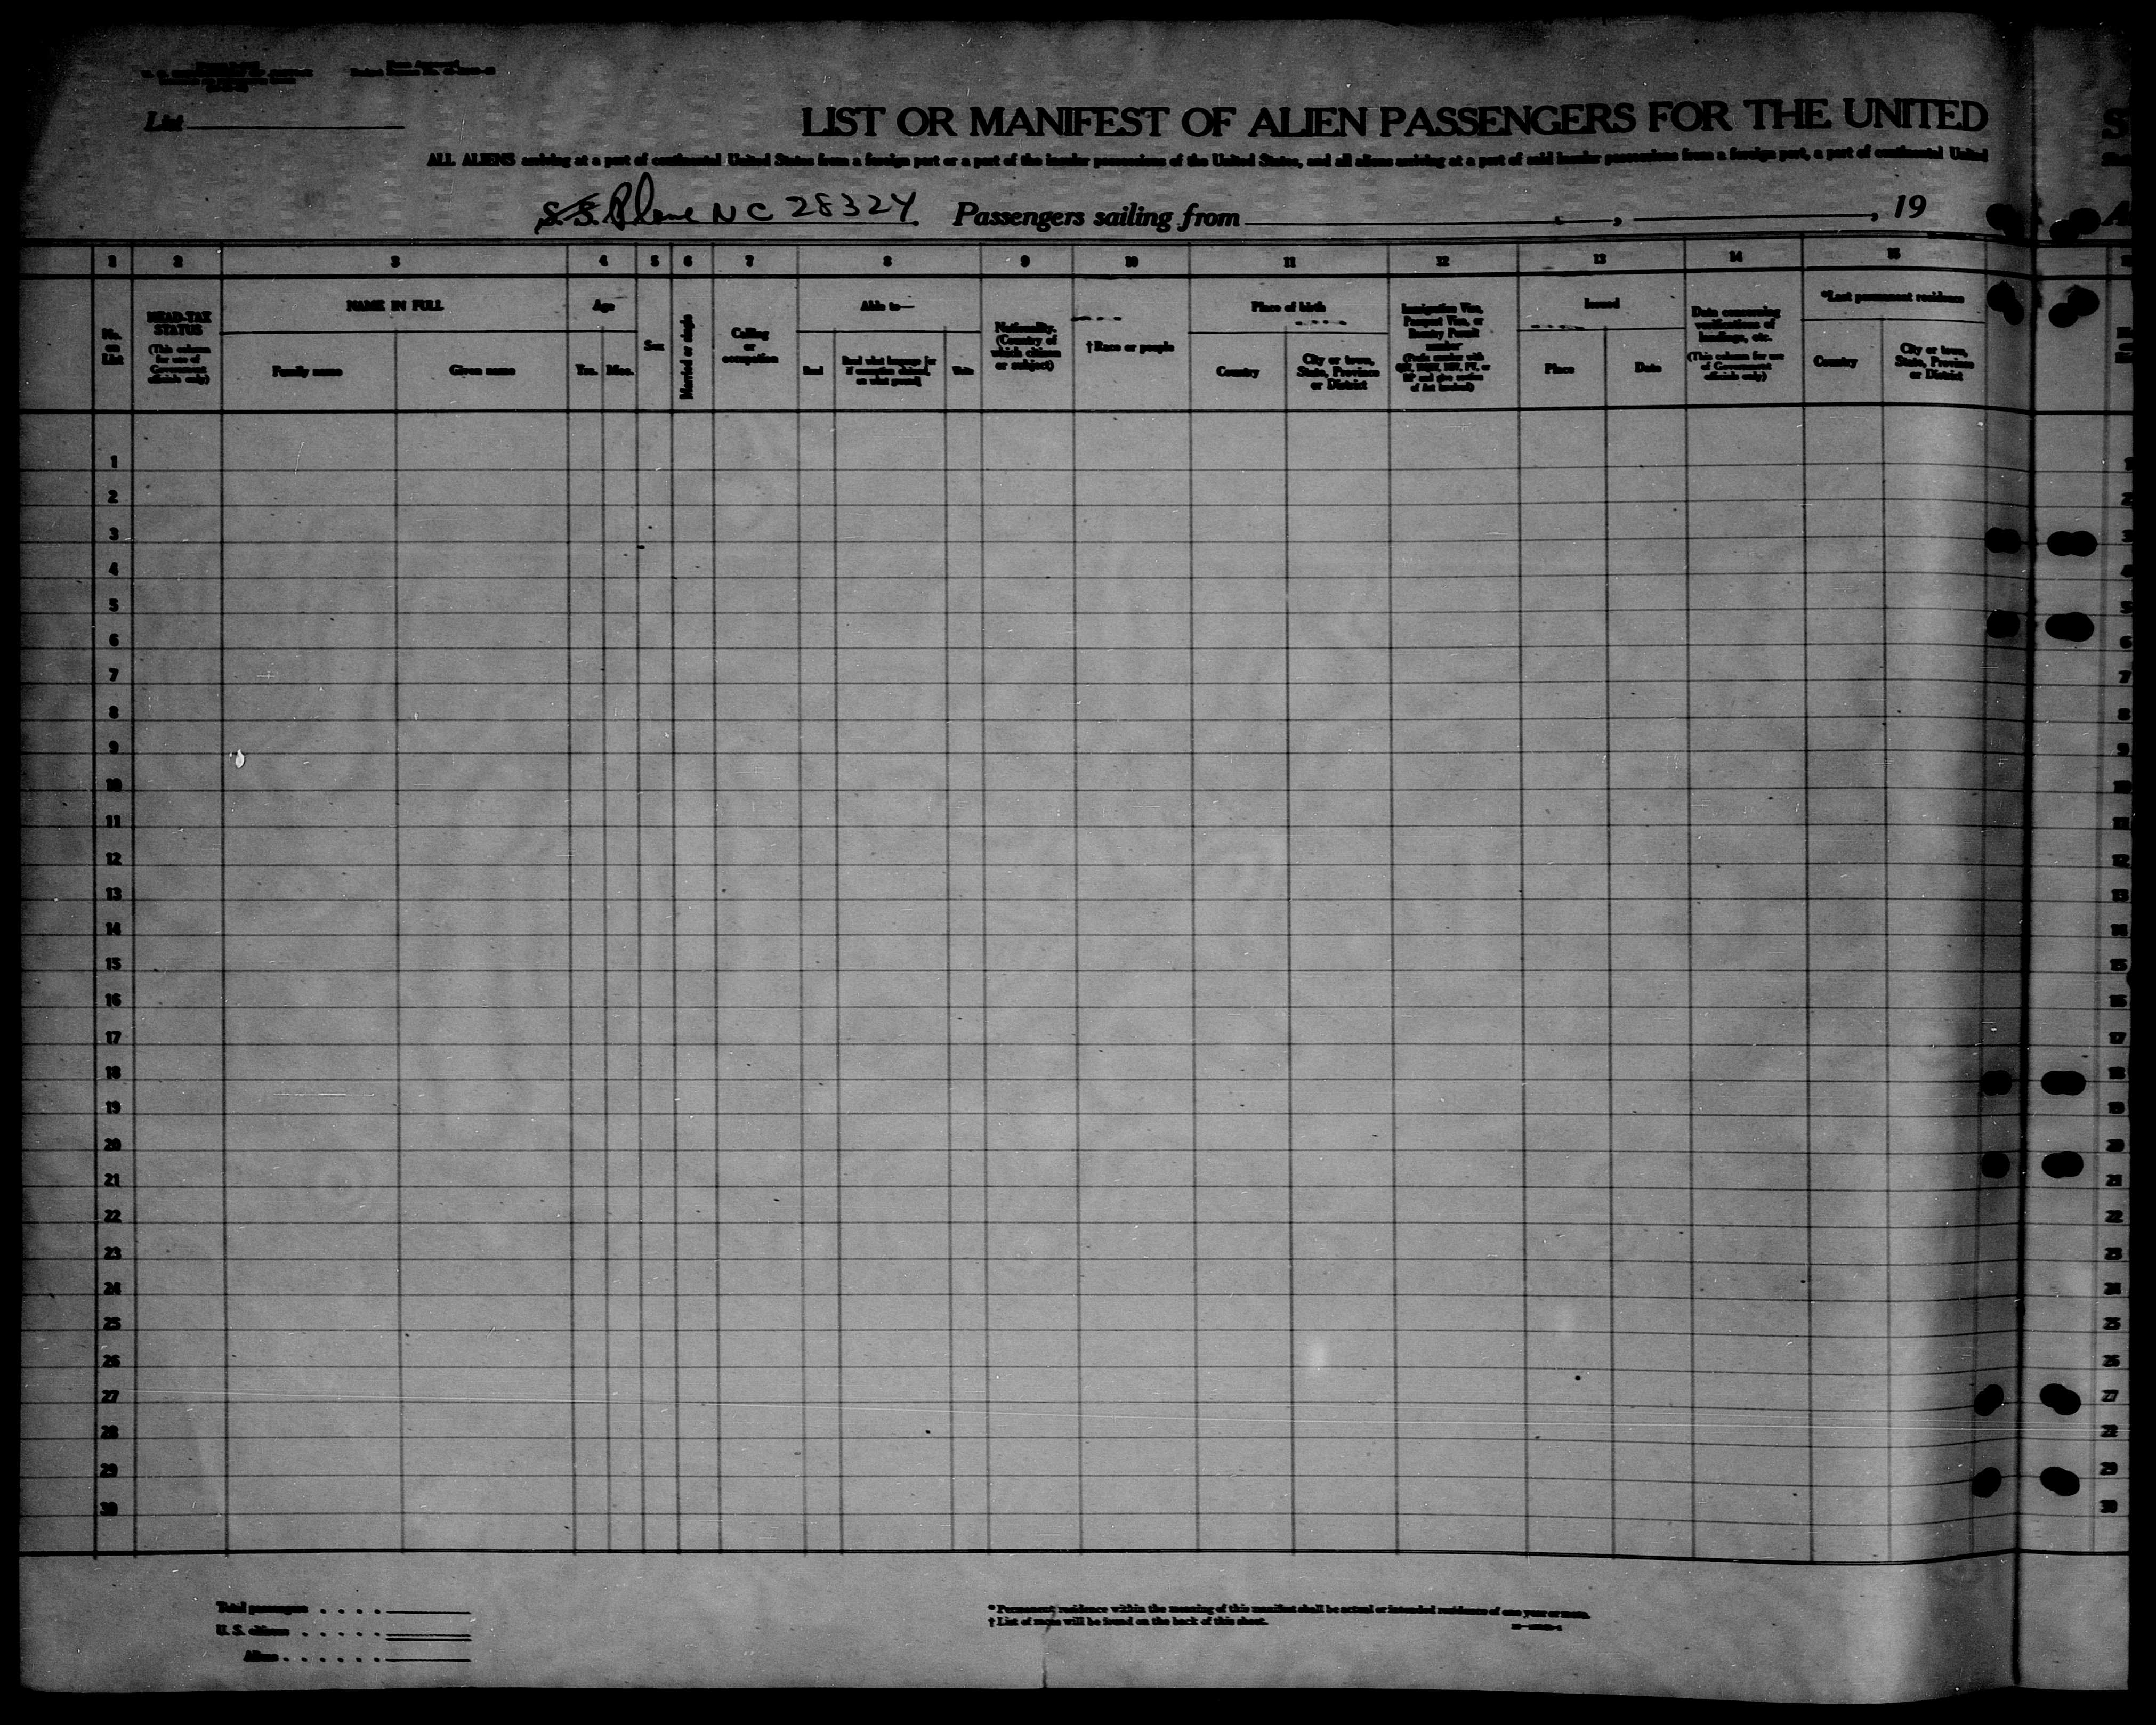 List
LIST OR MANIFEST OF ALIEN PASSENGERS FOR THE UNITED
ALL ALIENS arriving at a port of continental United States from a foreign port or a port of the insular possessions of the United States, and all aliens arriving at a port of said insular possessions from a foreign port, a port of continental United
S.S. Plane NC 28324 Passengers sailing from , , 19
1 2 3 4 5 6 7 8 9 10 11 12 13 14 15
No. on List
HEAD-TAX STATUS
(This column for use of Government officials only)
NAME IN FULL
Family name
Given name
Age
Yrs. Mos.
Sex
Married or single
Calling or occupation
Able to—
Read
Read what language [or if exemption claimed, on what ground]
Write
Nationality. (Country of which citizen or subject)
†Race or people
Place of birth
Country
City or town, State, Province or District
Immigration Visa, Passport Visa, or Reentry Permit number
Issued
Place
Date
Data concerning verifications of landings, etc.
(This column for use of Government officials only)
*Last permanent residence
Country
City or town, State, Province or District
1
2
3
4
5
6
7
8
9
10
11
12
13
14
15
16
17
18
19
20
21
22
23
24
25
26
27
28
29
30
Total passengers . . . .
U. S. citizens . . . . .
Aliens . . . . . .
* Permanent residence within the meaning of this manifest shall be actual or intended residence of one year or more.
† List of races will be found on the back of this sheet.